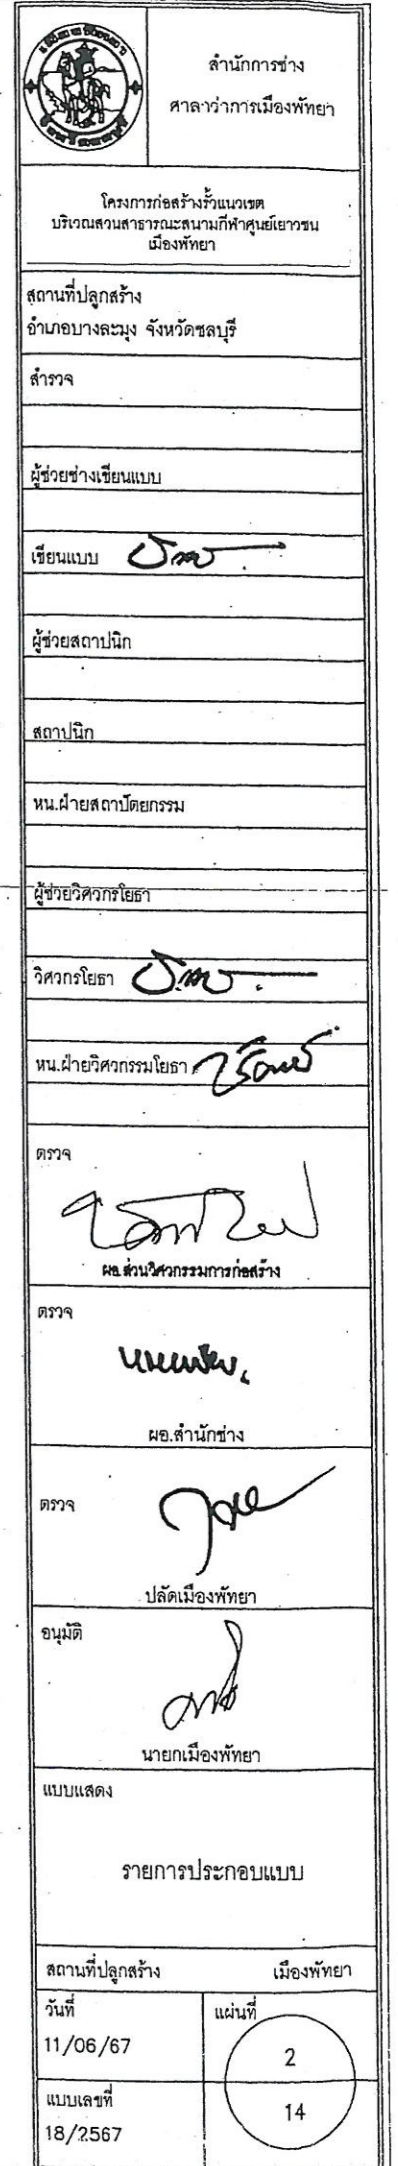 สำนักการช่าง
ศาลาว่าการเมืองพัทยา
โครงการก่อสร้างรั้วแนวเขต
บริเวณสวนสาธารณะสนามกีฬาศูนย์เยาวชน
เมืองพัทยา
สถานที่ปลูกสร้าง
อำเภอบางละมุง จังหวัดชลบุรี
สำรวจ
ผู้ช่วยช่างเขียนแบบ
เขียนแบบ
ผู้ช่วยสถาปนิก
สถาปนิก
หน.ฝ่ายสถาปัตยกรรม
ผู้ช่วยวิศวกรโยธา
วิศวกรโยธา
หน.ฝ่ายวิศวกรรมโยธา
ตรวจ
ผอ.ส่วนวิศวกรรมการก่อสร้าง
ตรวจ
ผอ.สำนักช่าง
ตรวจ
ปลัดเมืองพัทยา
อนุมัติ
นายกเมืองพัทยา
แบบแสดง
รายการประกอบแบบ
สถานที่ปลูกสร้าง เมืองพัทยา
วันที่ แผ่นที่
11/06/67 2
แบบเลขที่ 14
18/2567